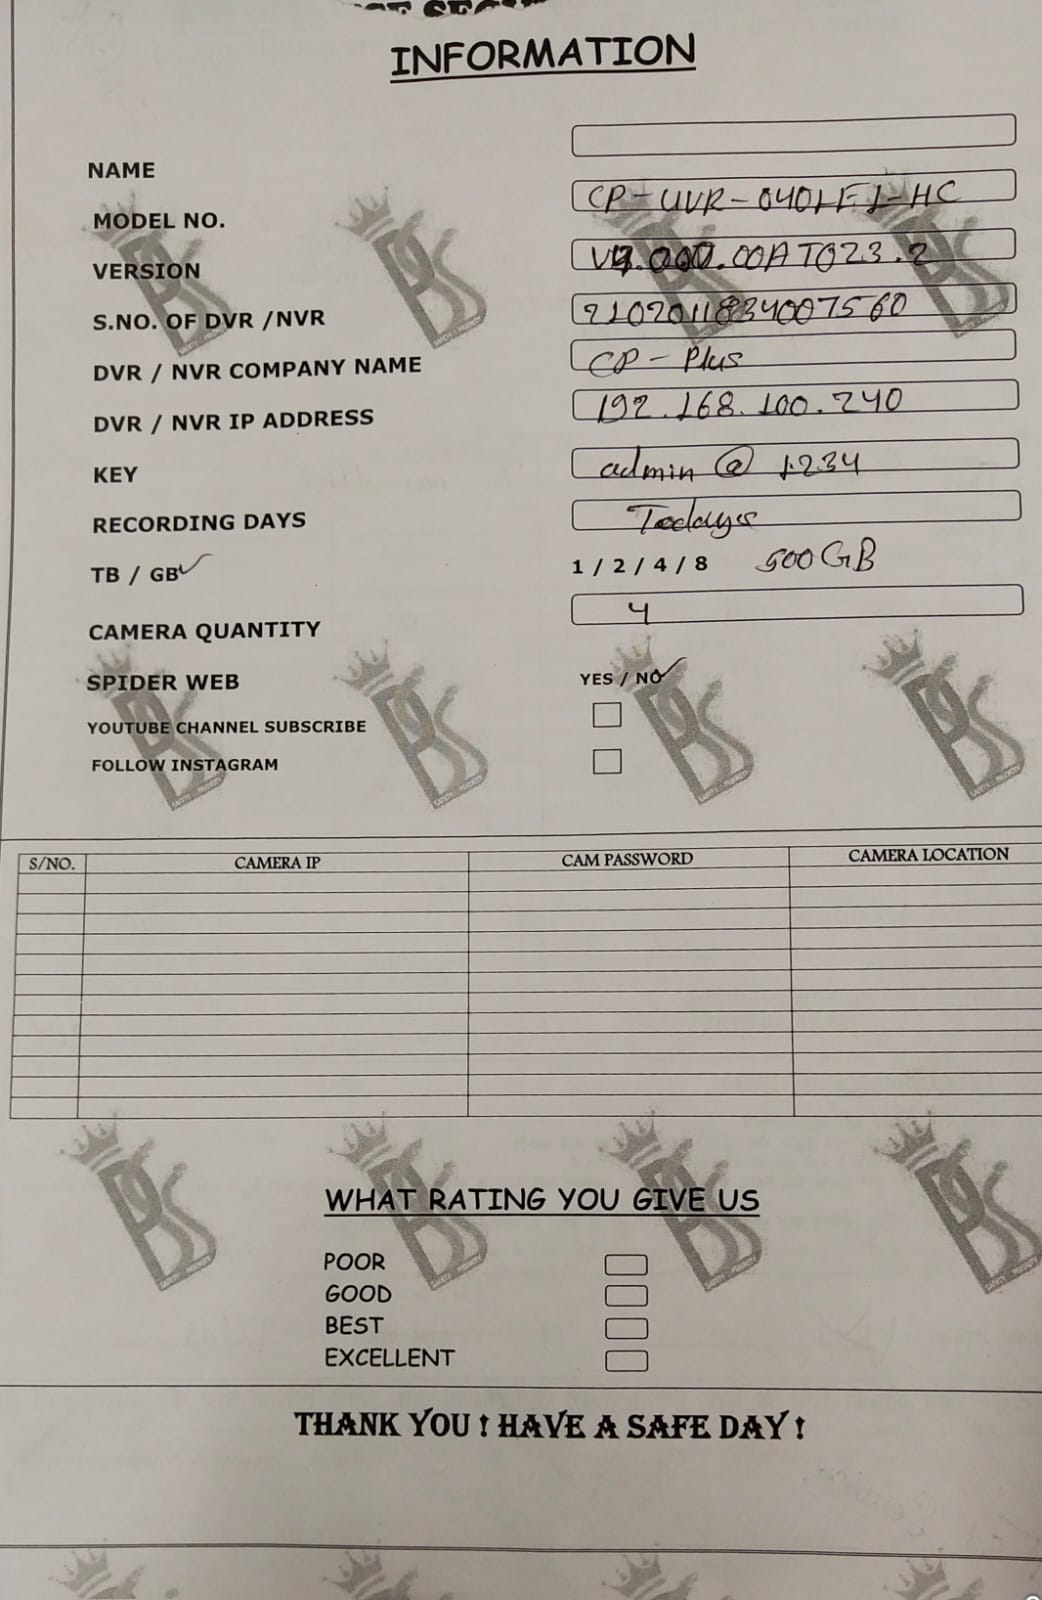 INFORMATION
NAME
MODEL NO. CP-UVR-0401E1-HC
VERSION
S.NO. OF DVR /NVR 2102011834007560
DVR / NVR COMPANY NAME CP-Plus
DVR / NVR IP ADDRESS 192.168.100.240
KEY admin @ 1234
RECORDING DAYS
TB / GB 1 / 2 / 4 / 8 500GB
CAMERA QUANTITY 4
SPIDER WEB YES / NO
YOUTUBE CHANNEL SUBSCRIBE
FOLLOW INSTAGRAM
S/NO. CAMERA IP CAM PASSWORD CAMERA LOCATION
WHAT RATING YOU GIVE US
POOR
GOOD
BEST
EXCELLENT
THANK YOU ! HAVE A SAFE DAY !